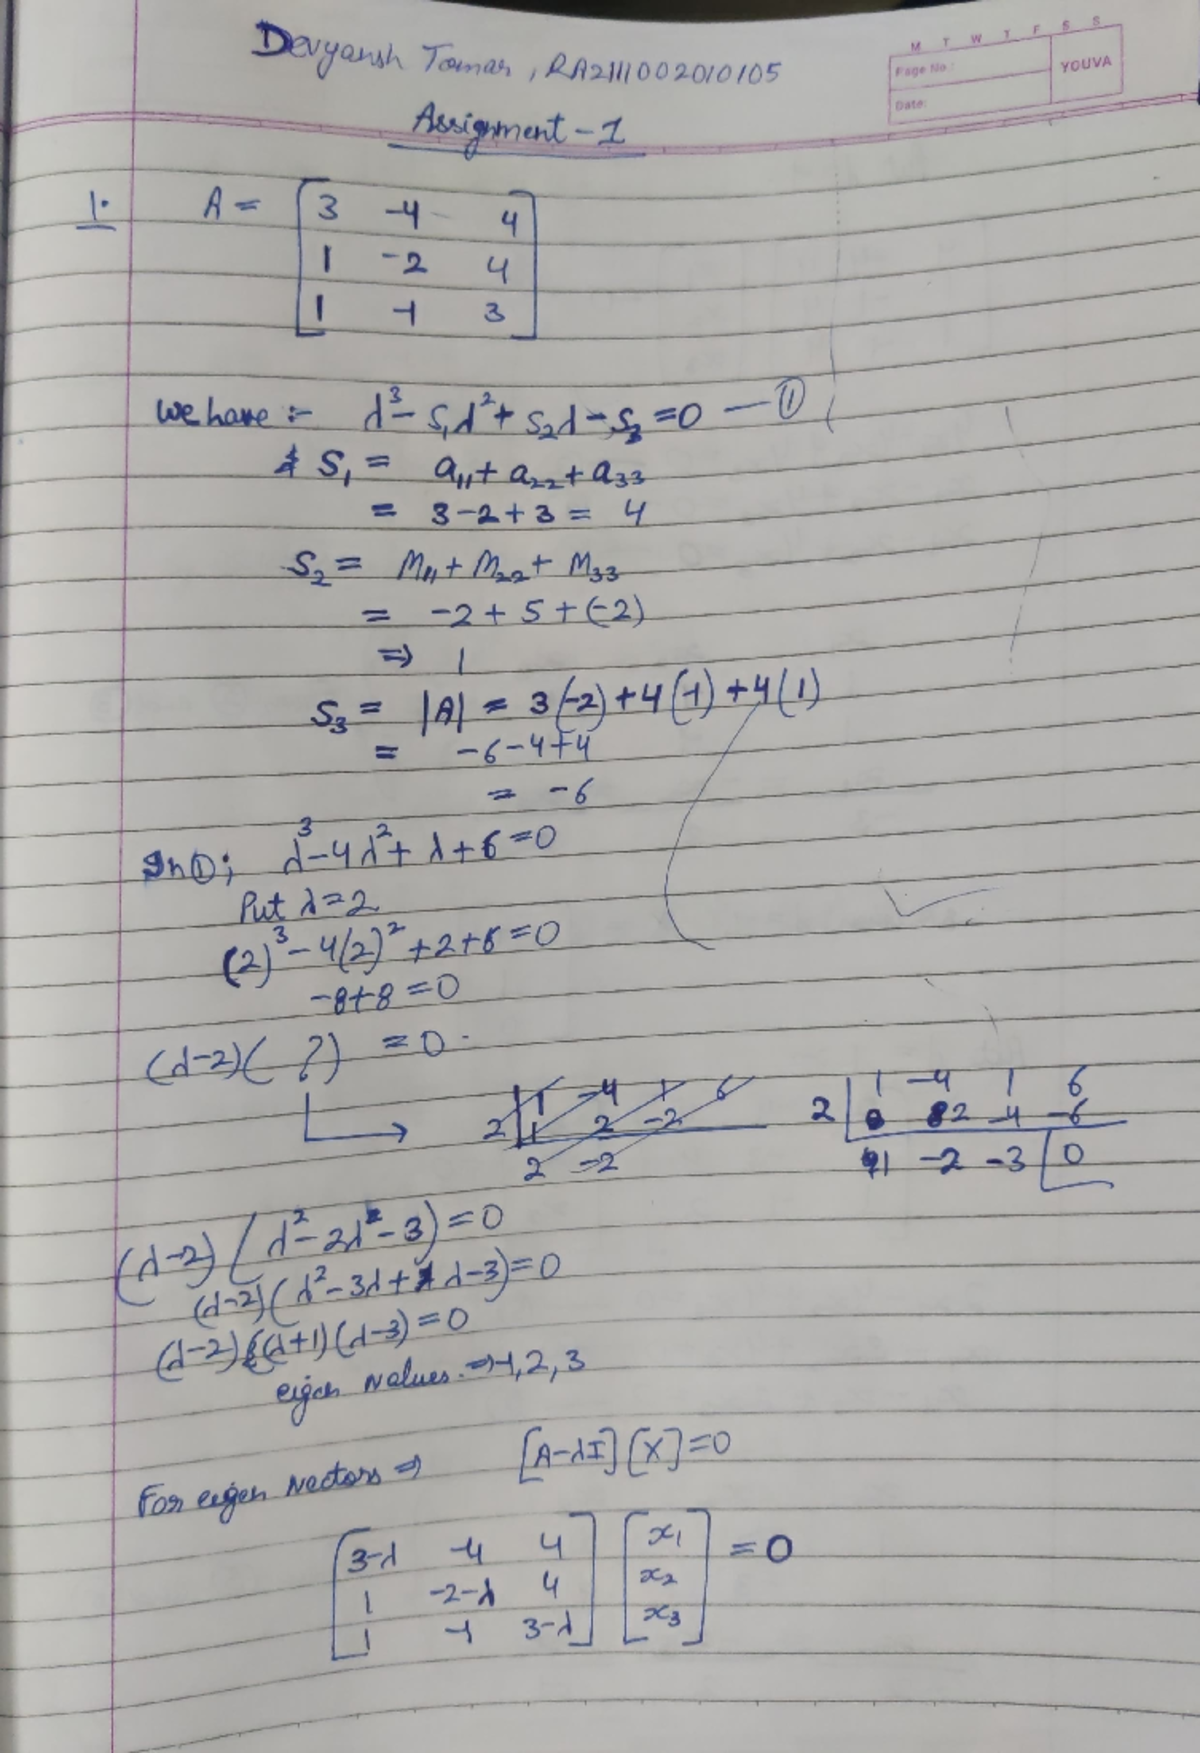 Devyansh Tomar, RA2111002010105
M T W T F S S
Page No.:
YOUVA
Date:
Assignment-1
1. A = [3 -4 4
1 -2 4
1 -1 3]
We have :- λ³ - S₁λ² + S₂λ - S₃ = 0 — ①
S₁ = a₁₁ + a₂₂ + a₃₃
= 3-2+3 = 4
S₂ = M₁₁ + M₂₂ + M₃₃
= -2 + 5 + (-2)
⇒ 1
S₃ = |A| = 3(-2) + 4(-1) + 4(1)
= -6-4+4
= -6
In ①; λ³ - 4λ² + λ + 6 = 0
Put λ = 2
(2)³ - 4(2)² + 2 + 6 = 0
-8+8 = 0
(λ-2)( ? ) = 0
2 | 1 -4 1 6
1 2 -2
2 -2
2 | 1 -4 1 6
0 2 -4 -6
1 -2 -3 | 0
(λ-2)(λ² - 2λ - 3) = 0
(λ-2)(λ² - 3λ + λ - 3) = 0
(λ-2)(λ+1)(λ-3) = 0
eigen values. ⇒ -1, 2, 3
For eigen vectors ⇒ [A-λI][X] = 0
[3-λ -4 4
1 -2-λ 4
1 -1 3-λ] [x₁
x₂
x₃] = 0